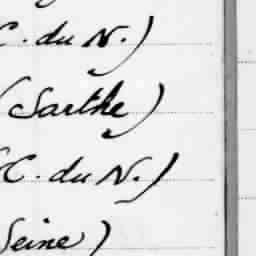 C. du N.)
(Sarthe)
(C. du N.)
Seine)